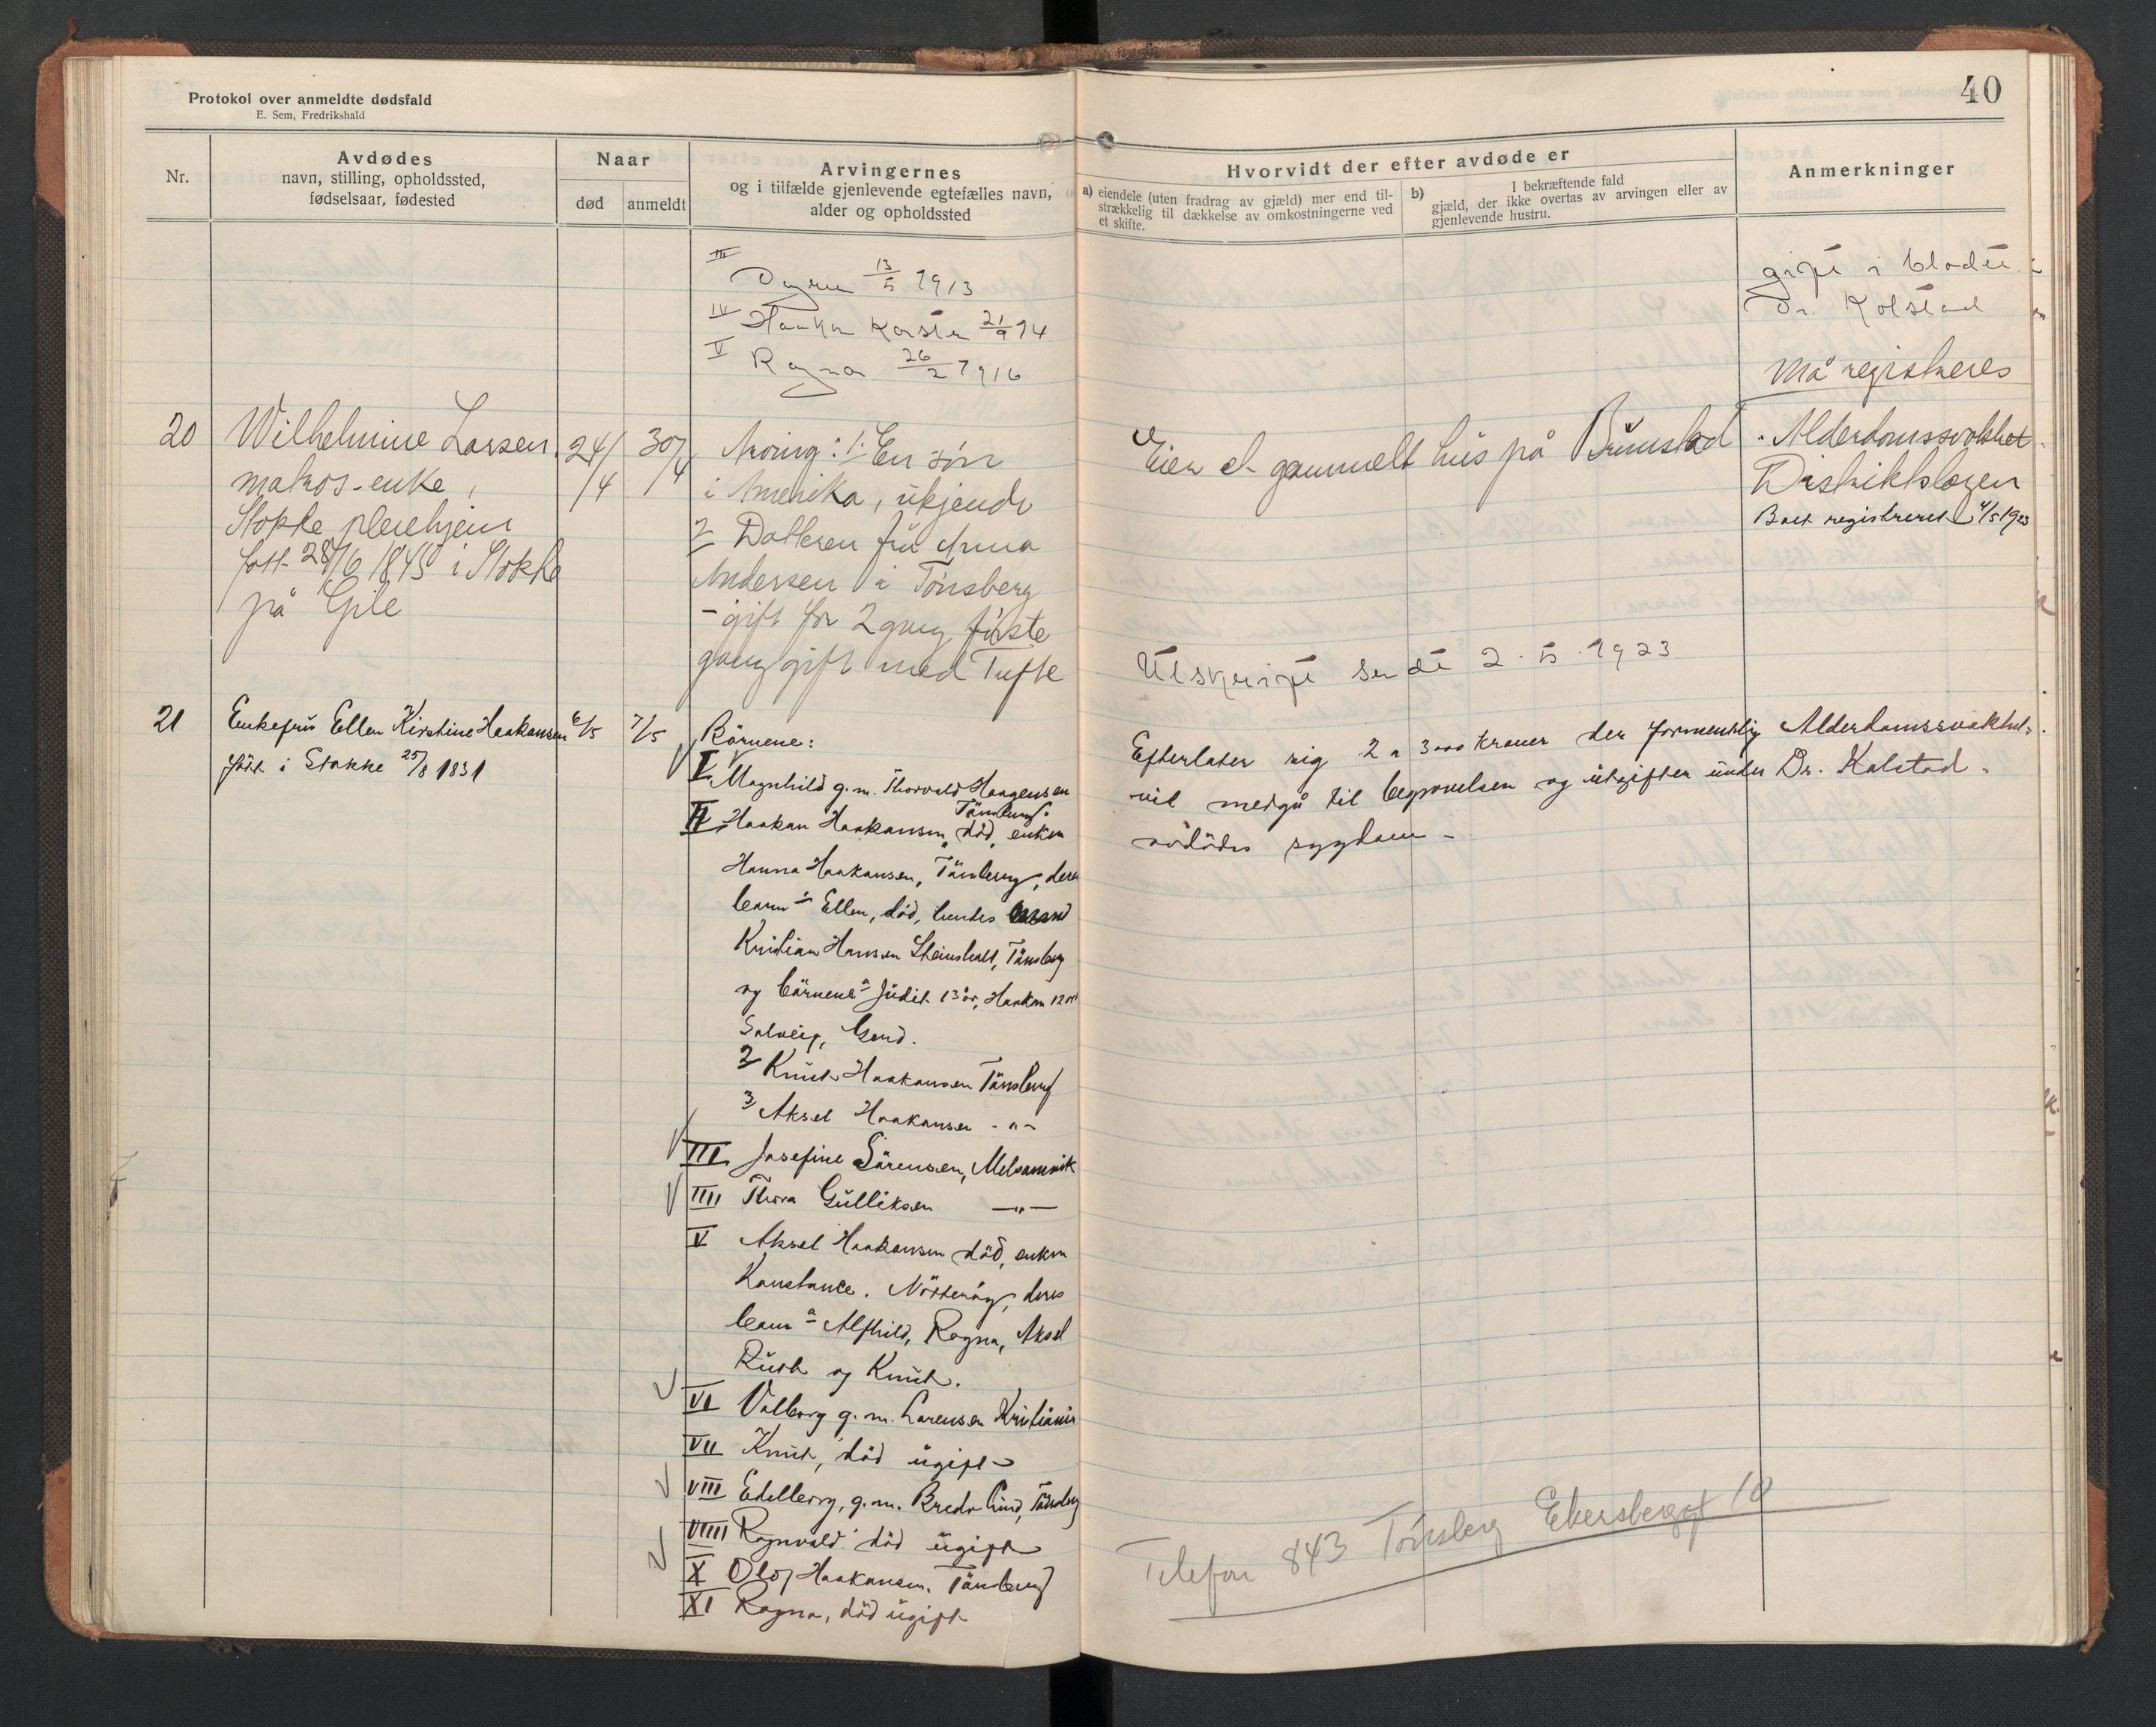 Protokol over anmeldte dødsfald
E. Sem, Fredrikshald
Nr.
Avdødes
navn, stilling, opholdssted,
fødselsaar, fødested
Naar
død
anmeldt
Arvingernes
og i tilfælde gjenlevende egtefælles navn,
alder og opholdssted
III
Dagrun 13/5 1913
IV Haakon Karsten 21/9 14
V Ragna 26/2 1916
20
Wilhelmine Larsen,
matros-enke,
Stokke pleiehjem
født 28/6 1845 i Stokke
på Gile
24/4
30/4
Arving: 1. En sön
i Amerika, ukjendt
2 Datteren fru Anna
Andersen i Tönsberg
- gift for 2 gang, förste
gang gift med Tufte
21
Enkefru Ellen Kirstine Haakansen
född i Stokke 25/8 1831
6/5
7/5
Börnene:
I. Magnhild g.m. Thorvald Haagensen
Tönsberg.
II. Haakon Haakansen, död, enken
Hanna Haakansen, Tönsberg, deres
barn 1 Ellen, död, hendes mand
Kristian Hansen Steinsholt, Tönsberg
og börnene a Judit 13 år, Haakon 12 år
Solveig, Gerd.
2 Knut Haakansen Tönsberg
3 Aksel Haakansen - " -
III Josefine Sörensen, Melsomvik
IIII Thora Gulliksen - " -
V Aksel Haakansen död, enken
Konstance. Nötteröy, deres
barn a Alfhild, Ragna, Aksel
Ruth og Knut.
VI Valborg g.m. Larensen Kristiania
VII Knut, död ugift
VIII Edelborg, g.m. Breda Lind, Tönsberg
VIIII Ragnvald död ugift
X Olaf Haakansen. Tönsberg
XI Ragna, död ugift
40
Hvorvidt der efter avdøde er
a) eiendele (uten fradrag av gjæld) mer end til-
strækkelig til dækkelse av omkostningerne ved
et skifte.
b) I bekræftende fald
gjæld, der ikke overtas av arvingen eller av
gjenlevende hustru.
Anmerkninger
gift i blodet
Dr. Kolstad
Må registreres
Eier et gammelt hus på Brunstad
Alderdomssvakhet
Distriktslægen
Boet registreret 4/5 1923
Utskrift sendt 2.5.1923
Efterlater sig 2 a 3000 kroner der formentlig
vil medgå til begravelsen og utgifter under
avdödes sygdom -
Alderdomssvakhet.
Dr. Kolstad.
Telefon 843 Tönsberg Ekersberggt 10